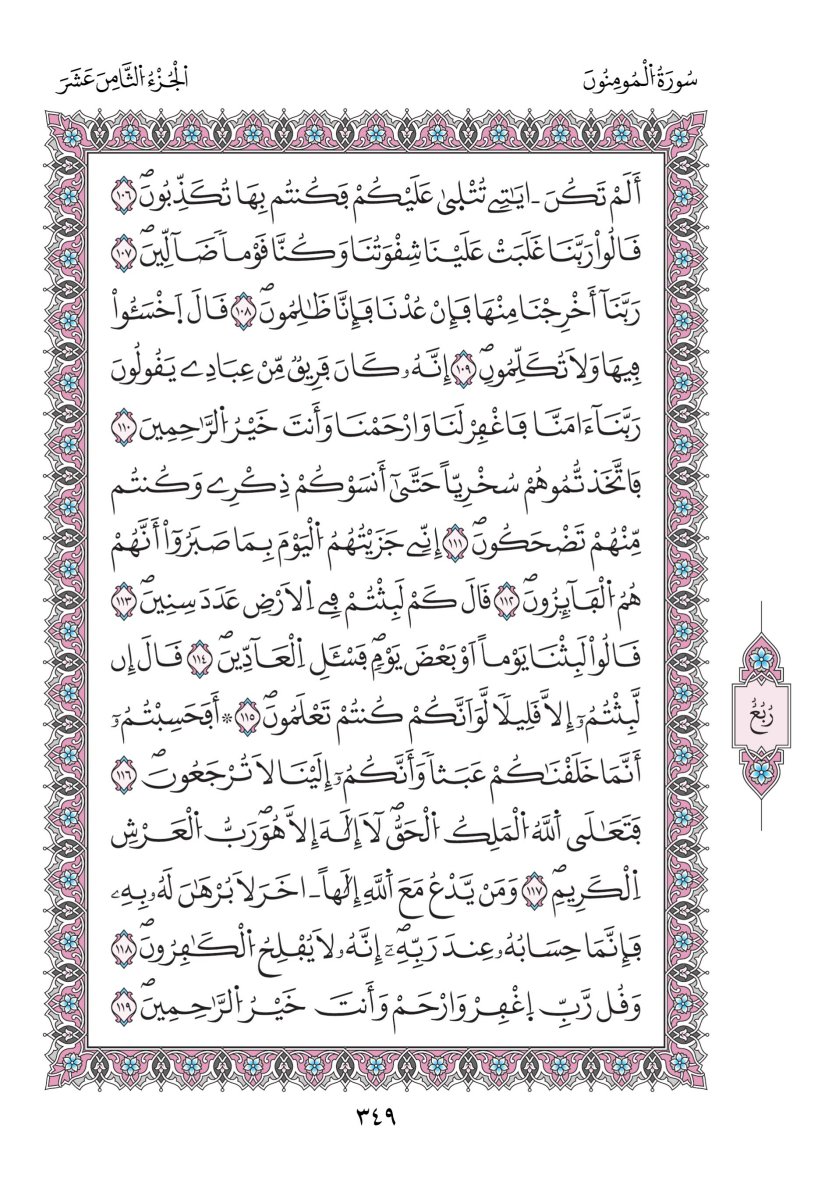 سُورَةُ الْمُومِنُونَ
الْجُزْءُ الثَّامِنَ عَشَرَ
أَلَمْ تَكُنَ ـايَٰتِے تُتْلۭيٰ عَلَيْكُمْ فَكُنتُم بِهَا تُكَذِّبُونَۖ ١٠٦
قَالُواْ رَبَّنَا غَلَبَتْ عَلَيْنَا شِقْوَتُنَا وَكُنَّا قَوْماٗ ضَآلِّينَۖ ١٠٧
رَبَّنَآ أَخْرِجْنَا مِنْهَا فَإِنْ عُدْنَا فَإِنَّا ظَٰلِمُونَۖ ١٠٨ قَالَ اَخْسَـُٔواْ
فِيهَا وَلَا تُكَلِّمُونِۖ ١٠٩ إِنَّهُۥ كَانَ فَرِيقٞ مِّنْ عِبَادِے يَقُولُونَ
رَبَّنَآ ءَامَنَّا فَاغْفِرْ لَنَا وَارْحَمْنَا وَأَنتَ خَيْرُ الرَّٰحِمِينَ ١١٠
فَاتَّخَذتُّمُوهُمْ سُخْرِيّاً حَتَّيٰٓ أَنسَوْكُمْ ذِكْرِے وَكُنتُم
مِّنْهُمْ تَضْحَكُونَۖ ١١١ إِنِّے جَزَيْتُهُمُ الْيَوْمَ بِمَا صَبَرُوٓاْ أَنَّهُمْ
هُمُ الْفَآئِزُونَۖ ١١٢ قَالَ كَمْ لَبِثْتُمْ فِے اِلَارْضِ عَدَدَ سِنِينَۖ ١١٣
قَالُواْ لَبِثْنَا يَوْماً اَوْ بَعْضَ يَوْمٖۖ فَسْـَٔلِ اِلْعَآدِّينَۖ ١١٤ قَالَ إِن
لَّبِثْتُمُۥٓ إِلَّا قَلِيلاٗ لَّوَ اَنَّكُمْ كُنتُمْ تَعْلَمُونَۖ ١١٥ ۞ أَفَحَسِبْتُمُۥٓ
أَنَّمَا خَلَقْنَٰكُمْ عَبَثاٗ وَأَنَّكُمُۥٓ إِلَيْنَا لَا تُرْجَعُونَۖ ١١٦
فَتَعَٰلَي اَ۬للَّهُ الْمَلِكُ الْحَقُّۖ لَآ إِلَٰهَ إِلَّا هُوَۖ رَبُّ الْعَرْشِ
اِلْكَرِيمِۖ ١١٧ وَمَنْ يَّدْعُ مَعَ اَ۬للَّهِ إِلَٰهاً ـاخَرَ لَا بُرْهَٰنَ لَهُۥ بِهِۦ
فَإِنَّمَا حِسَابُهُۥ عِندَ رَبِّهِۦٓۖ إِنَّهُۥ لَا يُفْلِحُ الْكَٰفِرُونَۖ ١١٨
وَقُل رَّبِّ اِغْفِرْ وَارْحَمْ وَأَنتَ خَيْرُ الرَّٰحِمِينَۖ ١١٩
رُبُعُ
٣٤٩